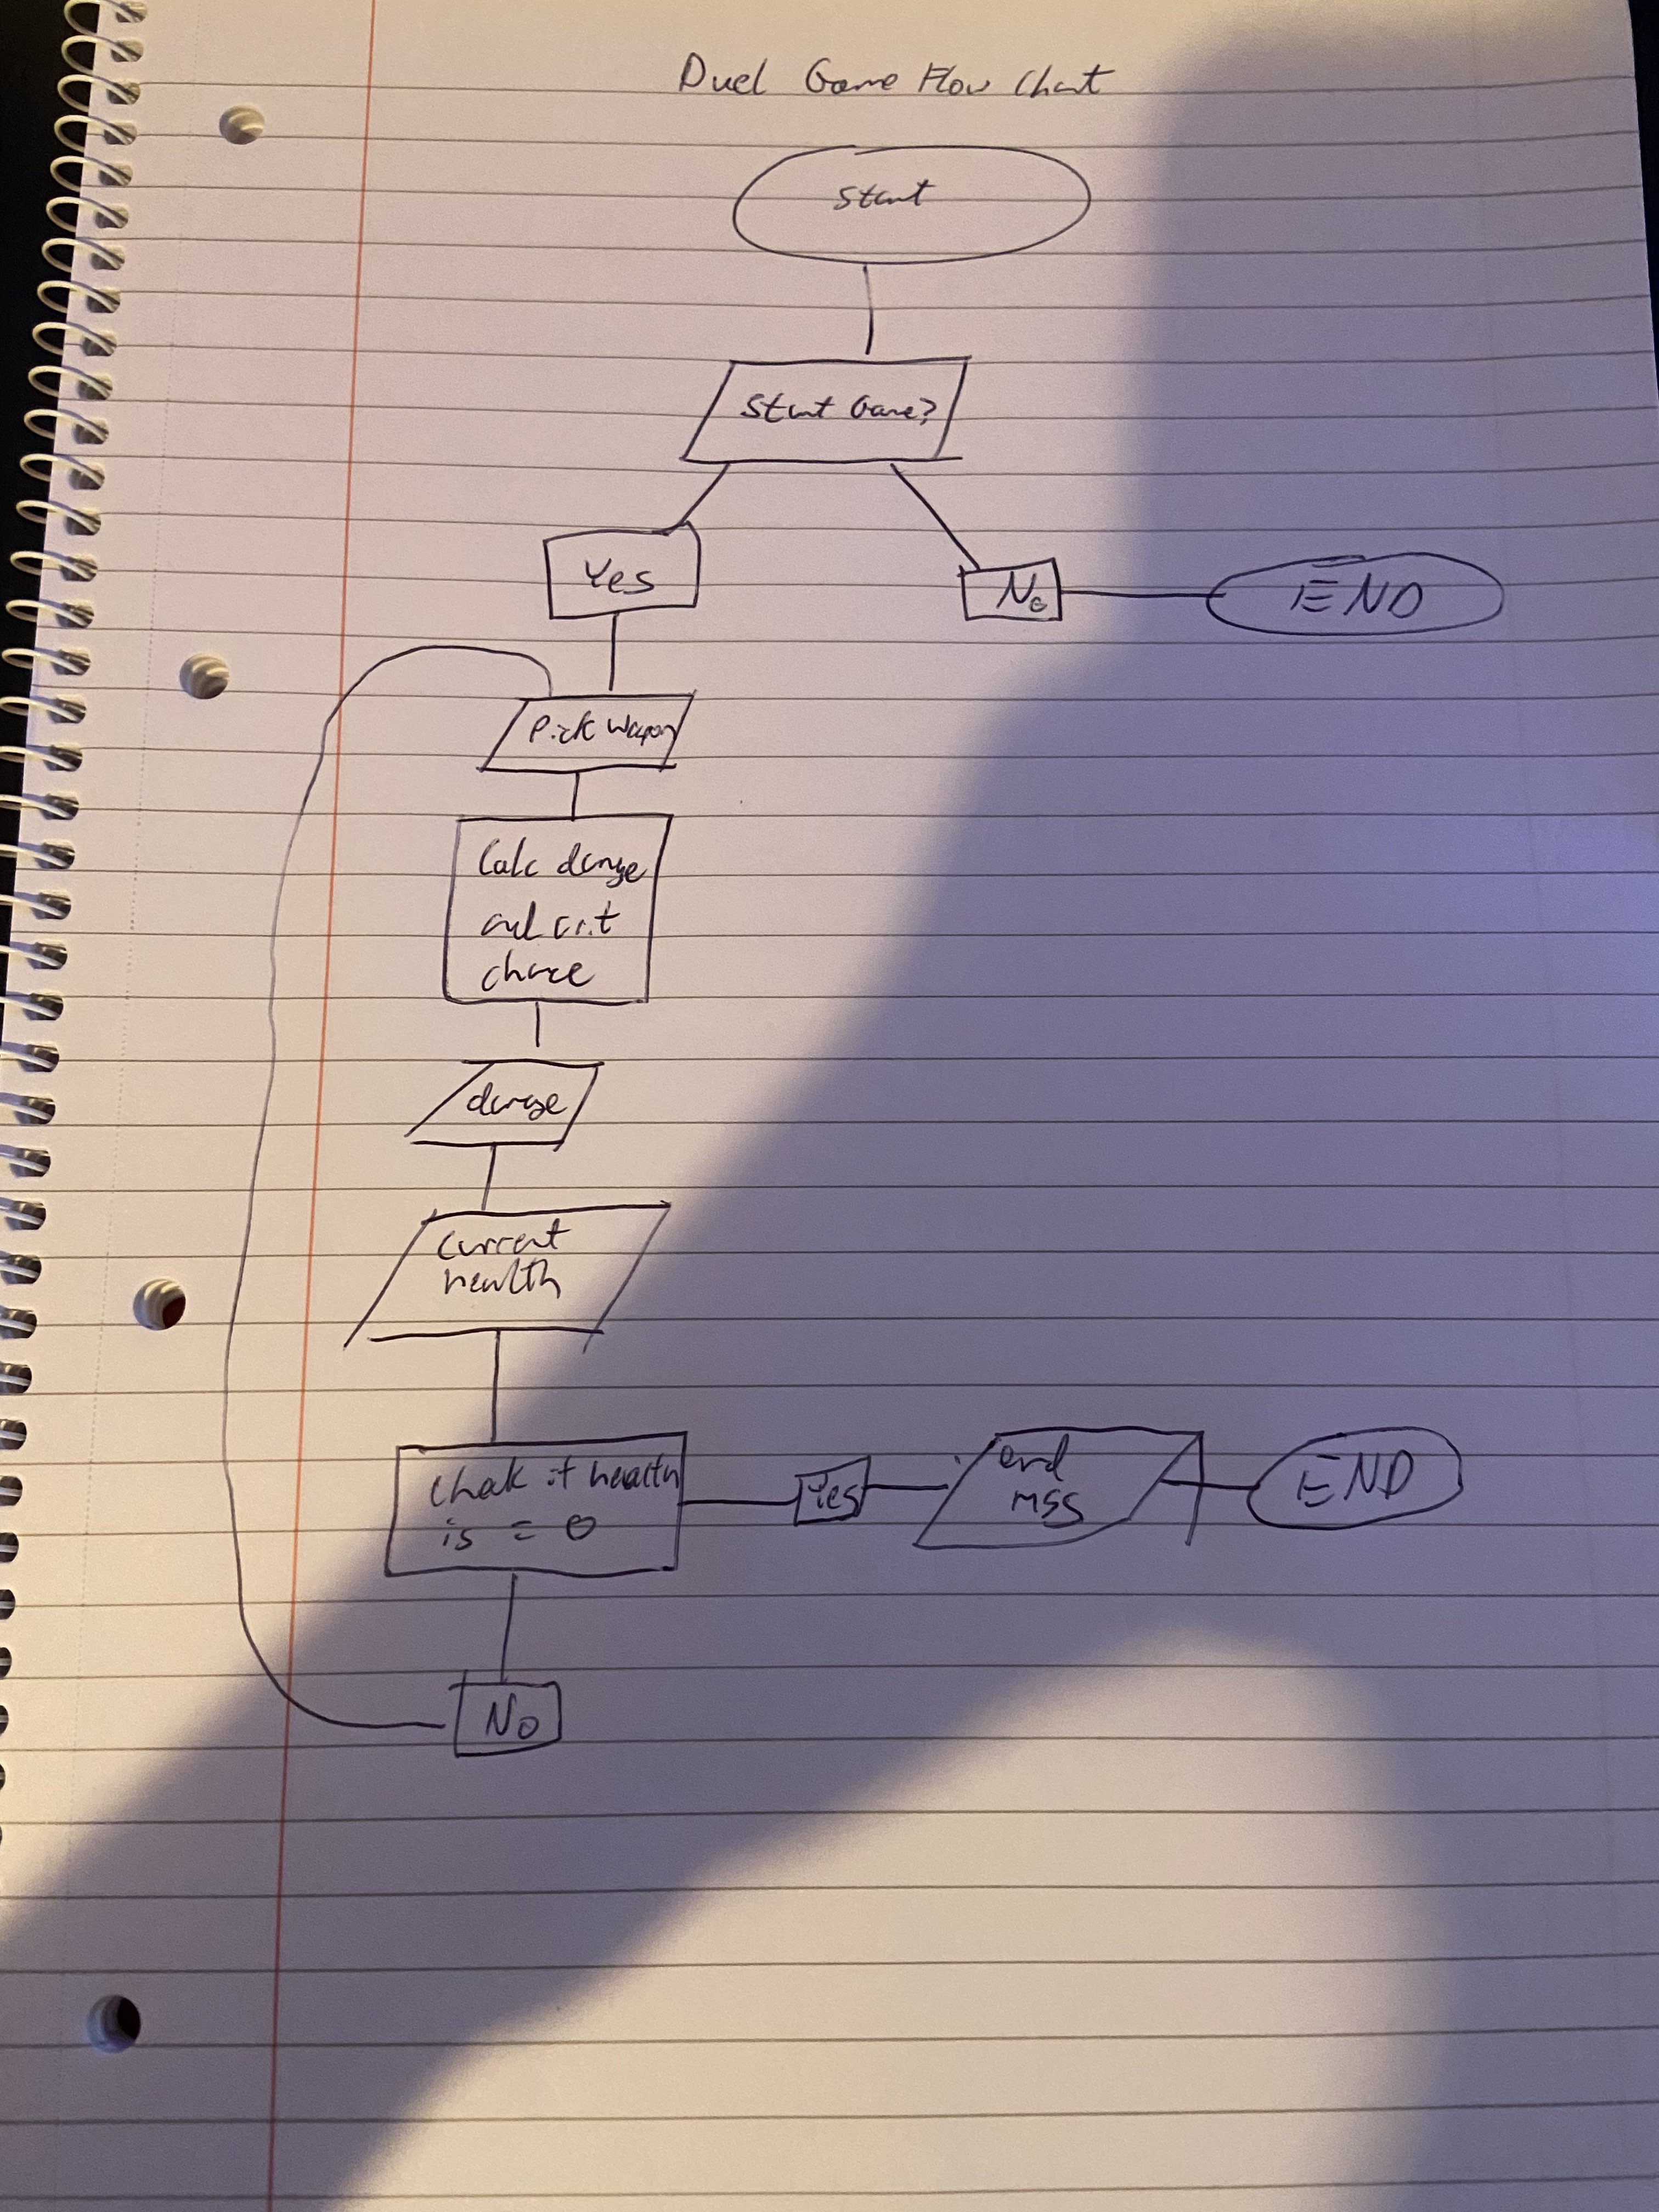 Duel Game Flow Chart
Start
Start Game?
Yes
No
END
Pick Weapon
Calc damage
and crit
chance
damage
Current
health
Check if health
is = 0
Yes
end
msg
END
No